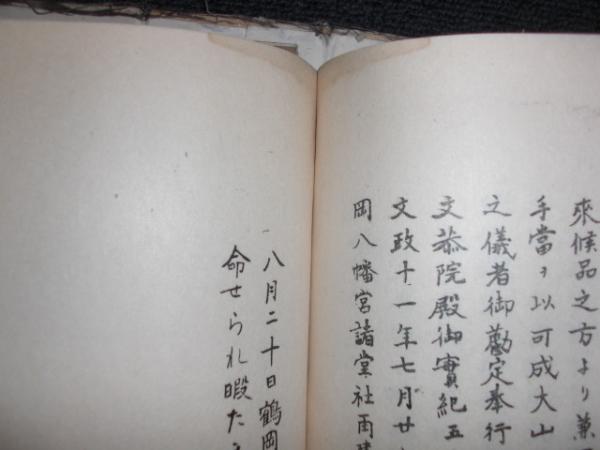 來候品之方より兼
手當ヲ以可成大山
之儀者御勘定奉行
文恭院殿御實紀五
文政十一年七月廿
岡八幡宮諸堂社雨
八月二十日鶴岡
命せられ暇た